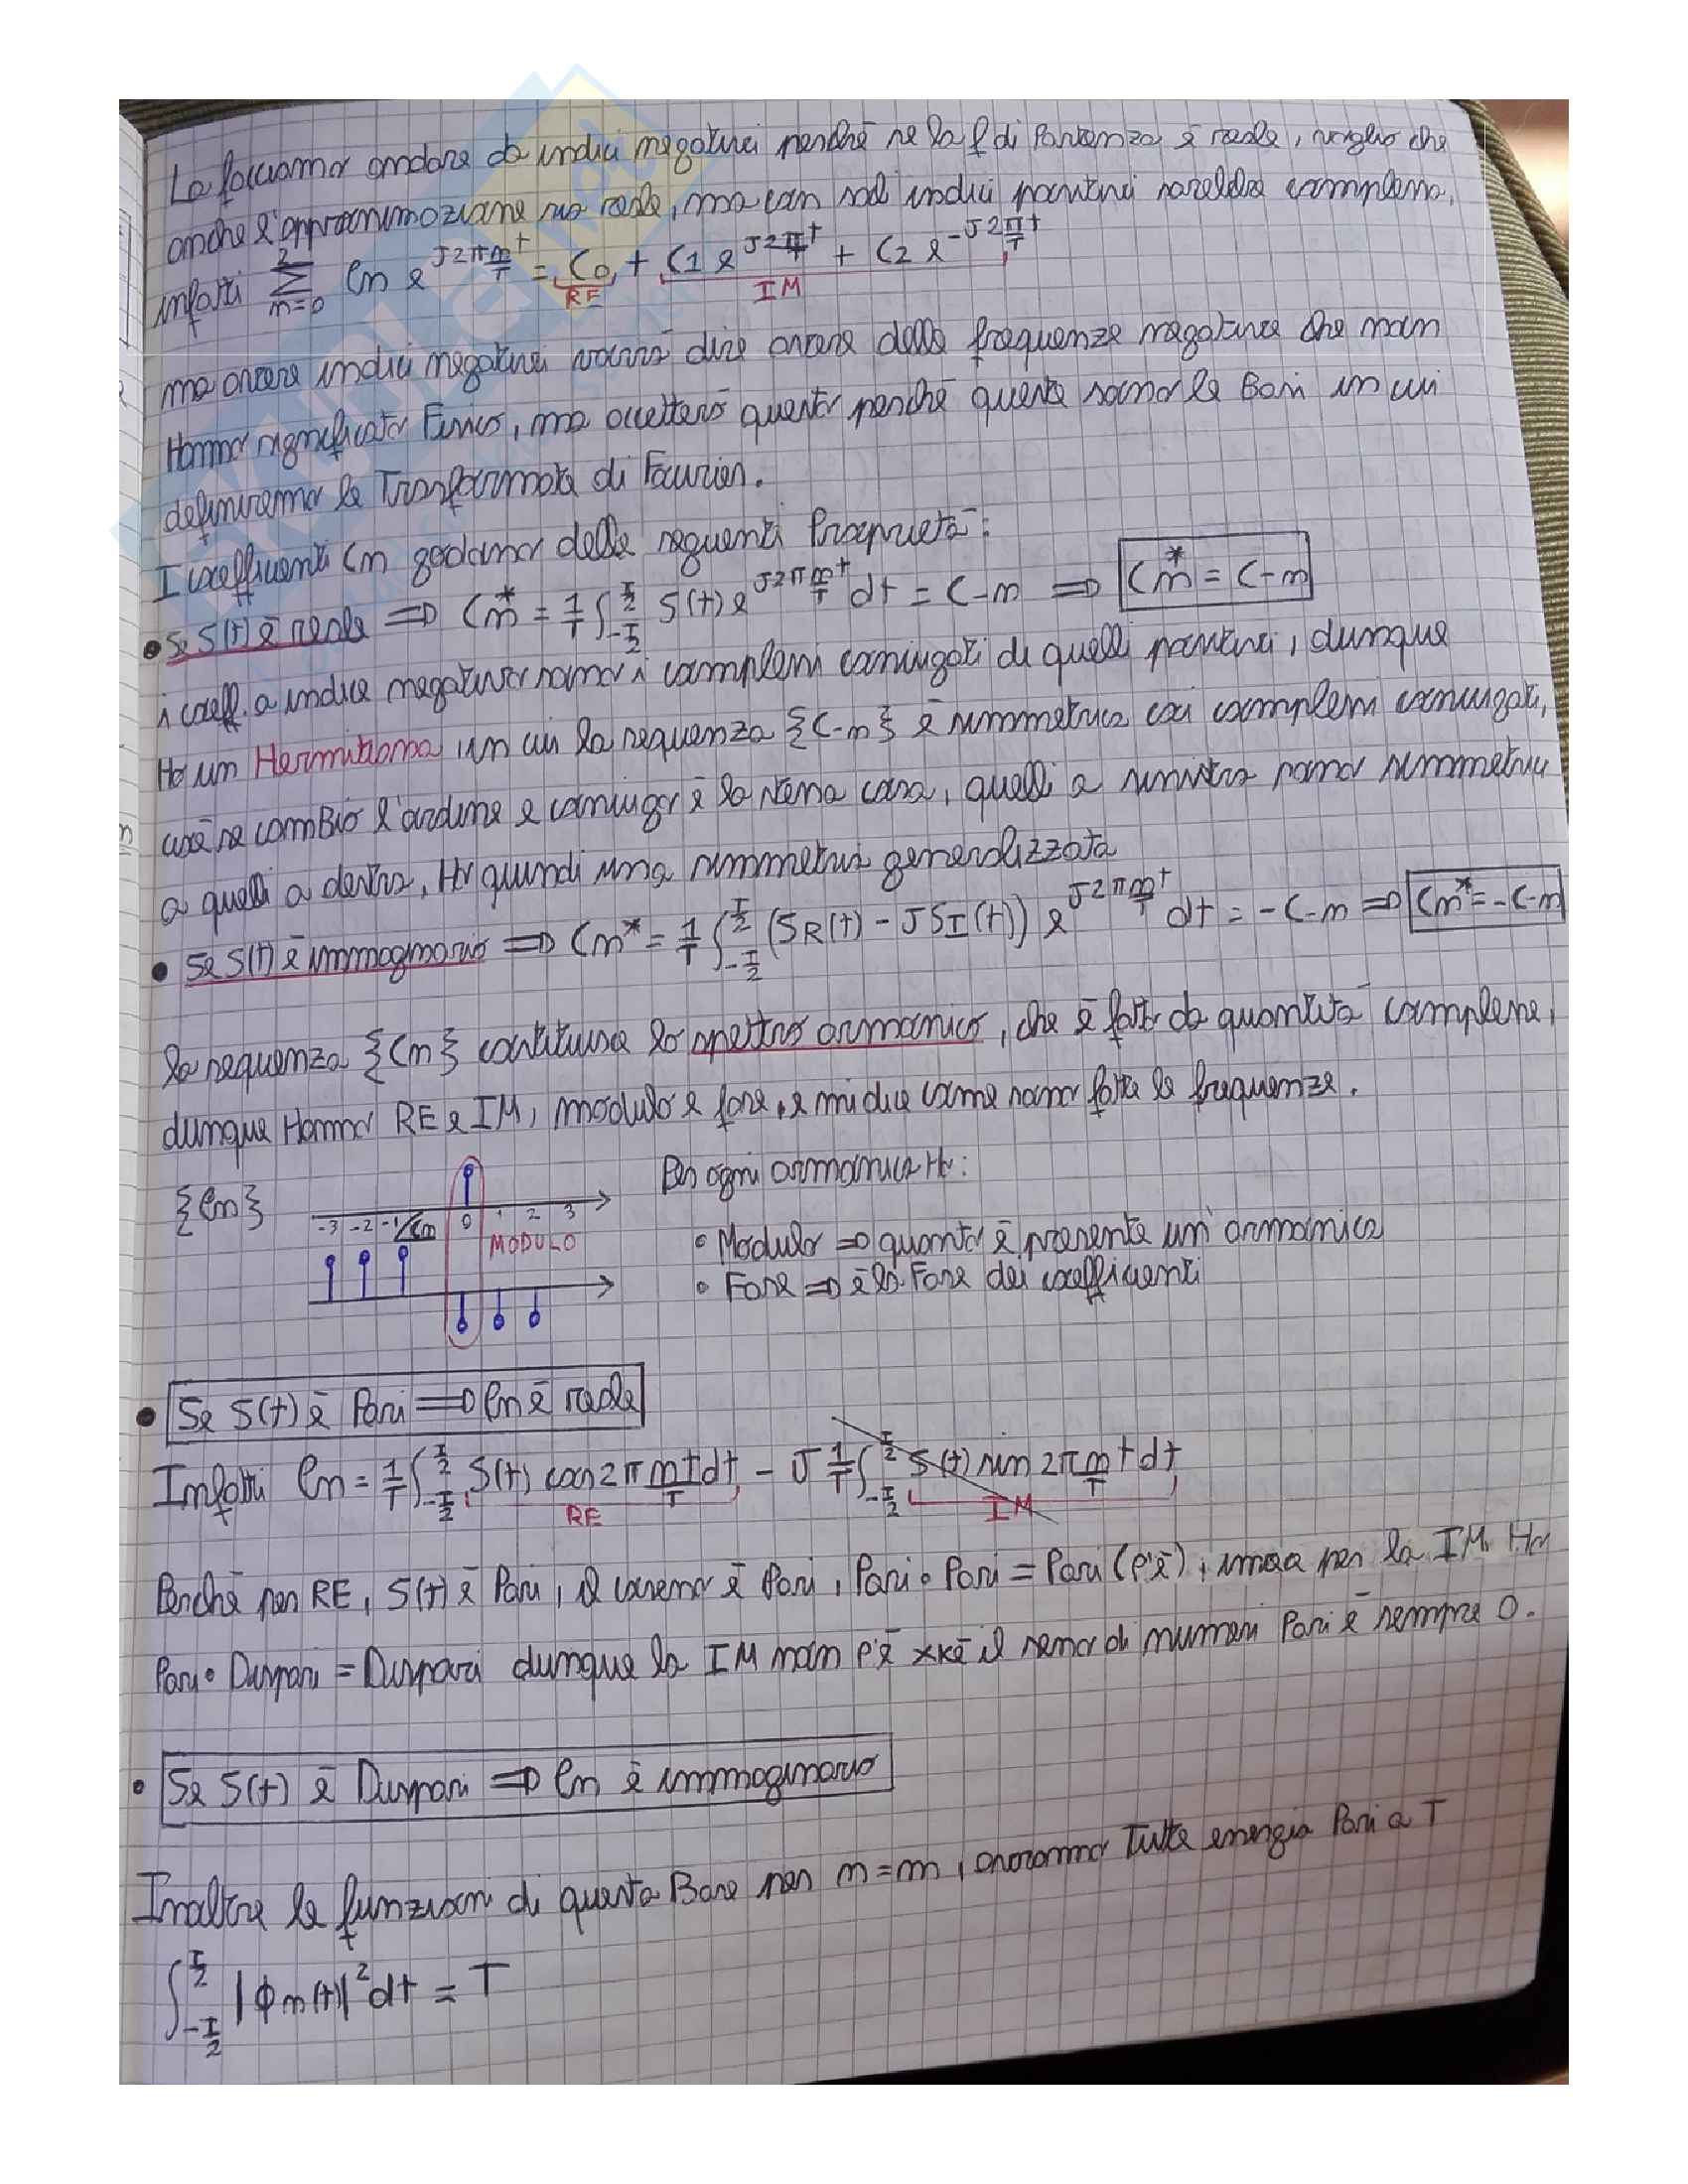 Lo facciamo andare da indici negativi perché se la f di Partenza è reale, voglio che
anche l'approssimazione sia reale, ma con soli indici positivi sarebbe complessa,
infatti \sum_{n=0}^{2} Cn e^{J2π\frac{n}{T}t} = C0 + C1 e^{J2\frac{π}{T}t} + C2 e^{-J2\frac{π}{T}t}
RE IM
ma avere indici negativi vorrà dire avere delle frequenze negative che non
Hanno significato Fisico, ma accetterò questo perché queste sono le Basi in cui
definiremo la Trasformata di Fourier.
I coefficienti Cn godono delle seguenti Proprietà:
• Se S(t) è reale ⇒ Cn* = \frac{1}{T} \int_{-\frac{T}{2}}^{\frac{T}{2}} S(t) e^{J2π\frac{n}{T}t} dt = C-n ⇒ Cn* = C-n
i coeff. a indice negativo sono i complessi coniugati di quelli positivi, dunque
Ho un Hermitiana in cui la sequenza {C-n} è simmetrica coi complessi coniugati,
cioè se cambio l'ordine e coniugo è la stessa cosa, quelli a sinistra sono simmetrici
a quelli a destra, Ho quindi una simmetria generalizzata
• Se S(t) è immaginario ⇒ Cn* = \frac{1}{T} \int_{-\frac{T}{2}}^{\frac{T}{2}} (SR(t) - JSI(t)) e^{J2π\frac{n}{T}t} dt = -C-n ⇒ Cn* = -C-n
la sequenza {Cn} costituisce lo spettro armonico, che è fatto da quantità complesse,
dunque Hanno RE e IM, modulo e fase, e mi dice come sono fatte le frequenze.
{Cn}
-3 -2 -1 0 1 2 3
Cn
MODULO
Per ogni armonica Ho:
• Modulo ⇒ quanto è presente un'armonica
• Fase ⇒ è la Fase dei coefficienti
• Se S(t) è Pari ⇒ Cn è reale
Infatti Cn = \frac{1}{T} \int_{-\frac{T}{2}}^{\frac{T}{2}} S(t) cos 2π \frac{n}{T} t dt - J \frac{1}{T} \int_{-\frac{T}{2}}^{\frac{T}{2}} S(t) sin 2π \frac{n}{T} t dt
RE IM
Perché per RE, S(t) è Pari, il coseno è Pari, Pari • Pari = Pari (c'è), invece per la IM Ho
Pari • Dispari = Dispari dunque la IM non c'è xkè il seno di numeri Pari è sempre 0.
• Se S(t) è Dispari ⇒ Cn è immaginario
Inoltre le funzioni di questa Base per n=m, avranno Tutte energia Pari a T
\int_{-\frac{T}{2}}^{\frac{T}{2}} |ϕn(t)|^2 dt = T